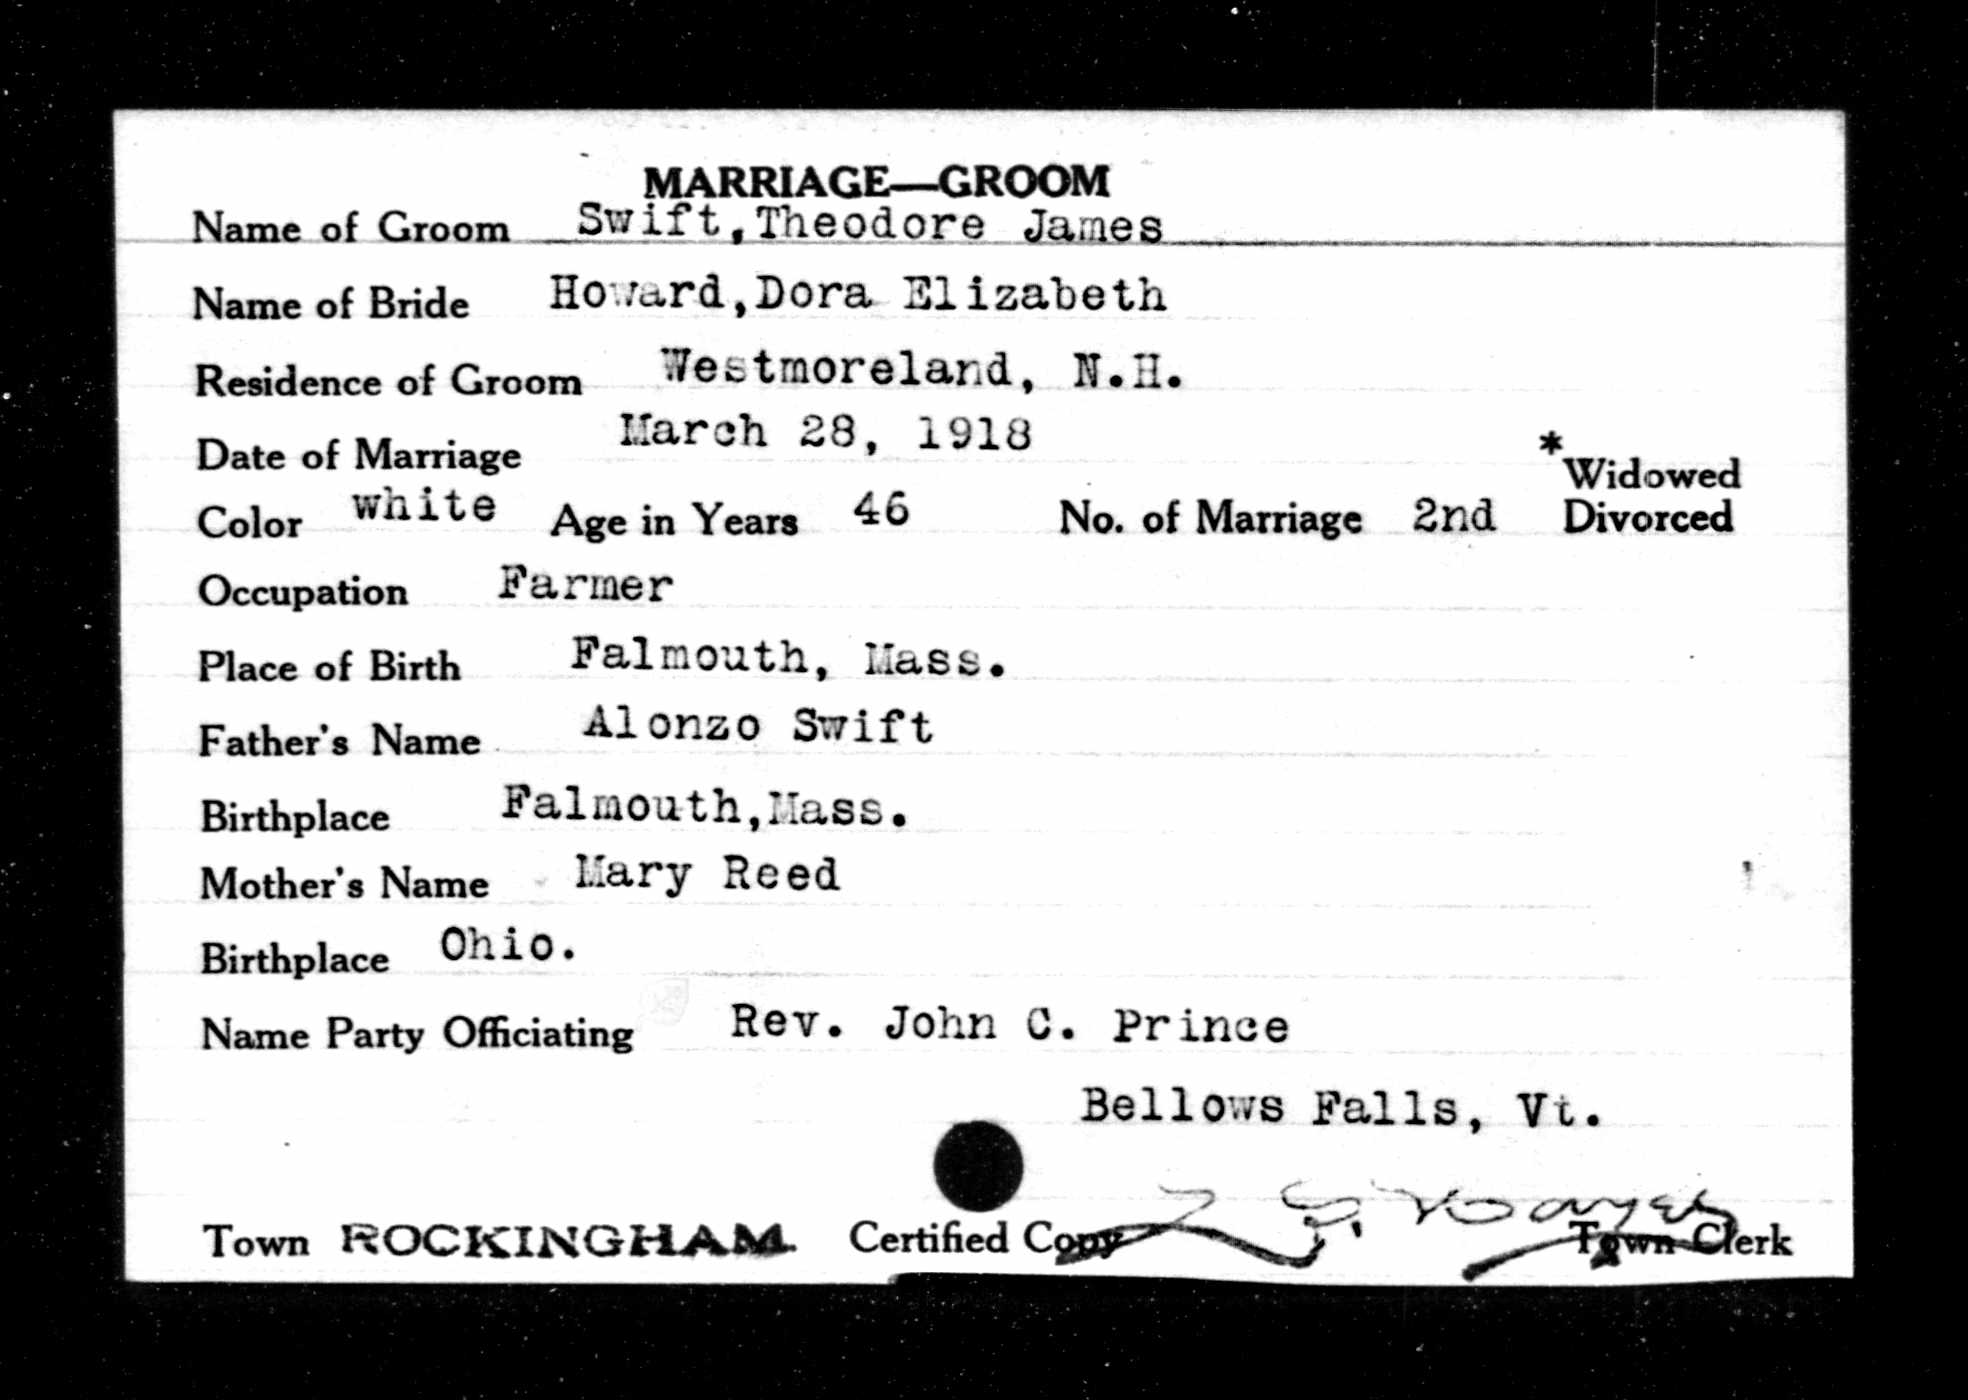 MARRIAGE—GROOM
Name of Groom Swift,Theodore James
Name of Bride Howard,Dora Elizabeth
Residence of Groom Westmoreland, N.H.
Date of Marriage March 28, 1918
*Widowed
Color white Age in Years 46 No. of Marriage 2nd Divorced
Occupation Farmer
Place of Birth Falmouth, Mass.
Father's Name Alonzo Swift
Birthplace Falmouth,Mass.
Mother's Name Mary Reed
Birthplace Ohio.
Name Party Officiating Rev. John C. Prince
Bellows Falls, Vt.
Town ROCKINGHAM Certified Copy Town Clerk